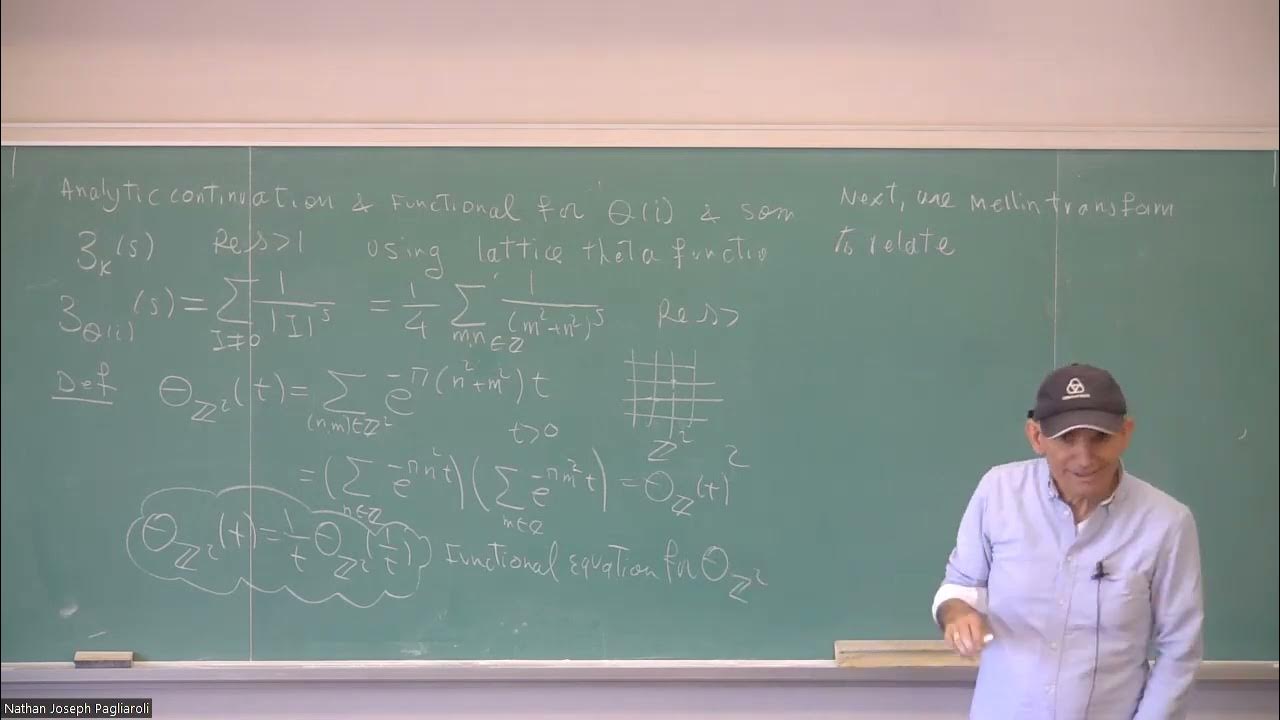 Analytic continuation & Functional for Θ(i) & som
ζ_K(s) Re s>1 using lattice theta functio
ζ_Q(i)(s) = Σ_{I≠0} 1/|I|^s = 1/4 Σ'_{m,n∈ℤ} 1/(m²+n²)^s Re s>
Def Θ_ℤ²(t) = Σ_{(n,m)∈ℤ²} e^{-π(n²+m²)t}
t>0
ℤ²
= (Σ_{n∈ℤ} e^{-πn²t})(Σ_{m∈ℤ} e^{-πm²t}) = Θ_ℤ(t)²
Θ_ℤ²(t) = 1/t Θ_ℤ²(1/t) Functional equation for Θ_ℤ²
Next, use mellin transform
to relate
Nathan Joseph Pagliaroli